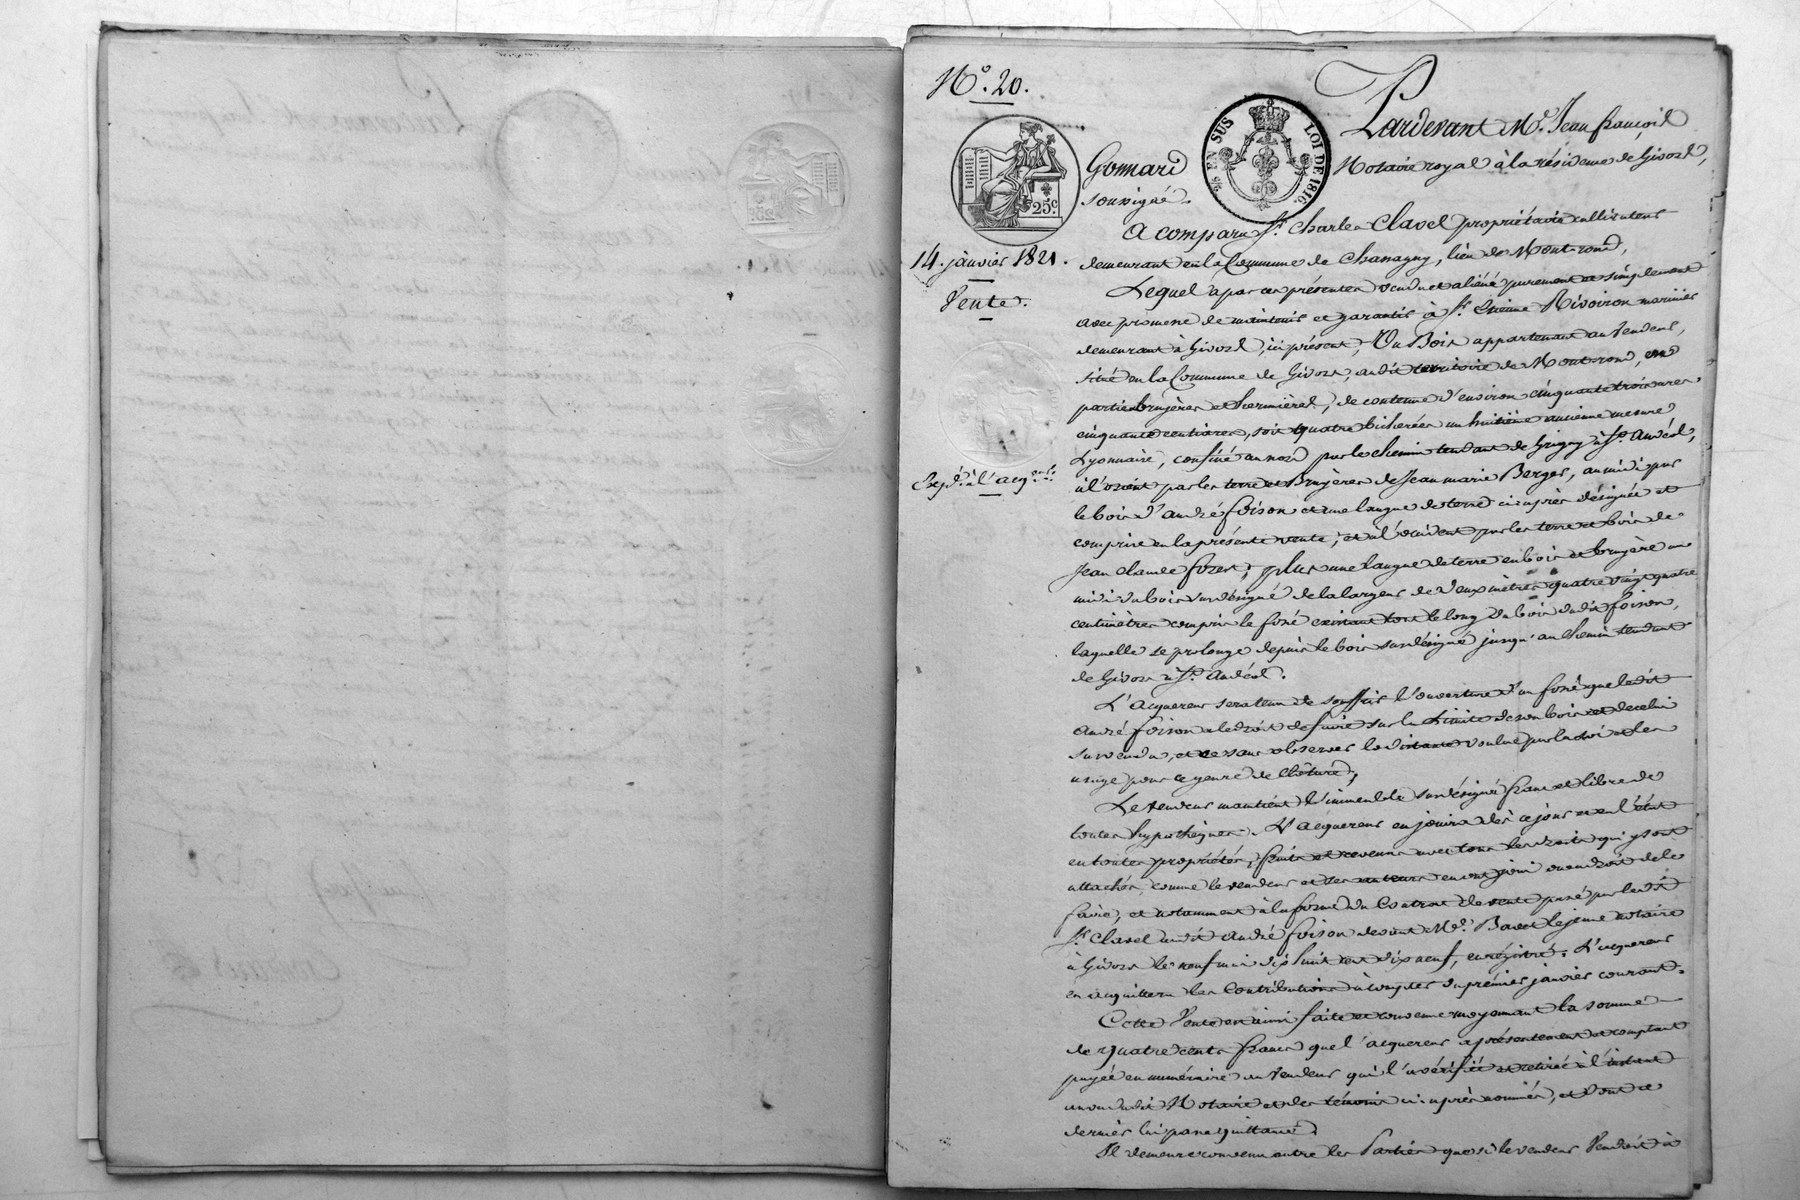 N.° 20.
Pardevant M.e Jean françois
Gonnard Notaire royal à la résidence de Givors,
soussigné.
25 c
26 EN SUS LOI DE 1816
14. janvier 1821.
Vente.
Exp.é à l'acq.eur
A comparu S.r Charles Clavel propriétaire cultivateur
demeurant en la Commune de Chassagny, lieu de Montrond,
Lequel a par ces présentes vendu et aliéné purement et simplement
avec promesse de maintenir et garantir à S.r Etienne Rivoiron marinier
demeurant à Givors, ici présent, Un Bois appartenant au Vendeur,
situé en la Commune de Givors, audit territoire de Montrond, en
partie bruyères et hermières, de contenue d'environ cinquante trois ares
cinquante centiares, soit quatre bicherées un huitième ancienne mesure
Lyonnaise, confiné au nord par le chemin tendant de Grigny à S.t Andéol,
à l'orient par les terre et Bruyères de Jean marie Berger, au midi par
le bois d'André foison et une langue de terre ci après désignée et
comprise en la présente vente, et à l'occident par les terre et bois de
Jean Claude forer; plus une langue de terre en bois et bruyère au
midi du bois susdésigné de la largeur de deux mètres quatre vingt quatre
centimètres compris le fossé existant tout le long du bois dudit foison,
laquelle se prolonge depuis le bois susdésigné jusqu'au chemin tendant
de Givors à S.t Andéol.
L'acquereur sera tenu de souffrir l'ouverture d'un fossé que ledit
André foison a le droit de faire sur la limite de son bois et de celui
sus vendu, et ce sans observer la distance voulue par la loi et les
usage pour ce genre de clôture;
Le Vendeur maintient l'immeuble susdésigné franc et libre de
toutes hypothèques. L'acquereur en jouira dès ce jour et en l'état
en toutes propriétés, fruits et revenus avec tous les droits qui y sont
attachés, comme le vendeur et ses auteurs en ont joui ou eu droit de le
faire, et notamment à la forme du Contrat de vente passé par ledit
S.r Clavel audit André foison devant M.e Baret le jeune notaire
à Givors le neuf mai dix huit cent dix neuf, enrégistré. L'acquereur
en acquittera les Contributions à compter du prémier janvier courant.
Cette Vente est ainsi faite et convenue moyennant la somme
de quatre cents francs que l'acquereur a présentement et comptant
payée en numéraire au Vendeur qui l'a vérifiée et retirée à l'instant
au vu dudit Notaire et des témoins ci après nommés, et dont ce
dernier lui passe quittance.
Il demeure convenu entre les Parties que si le vendeur Vendait à